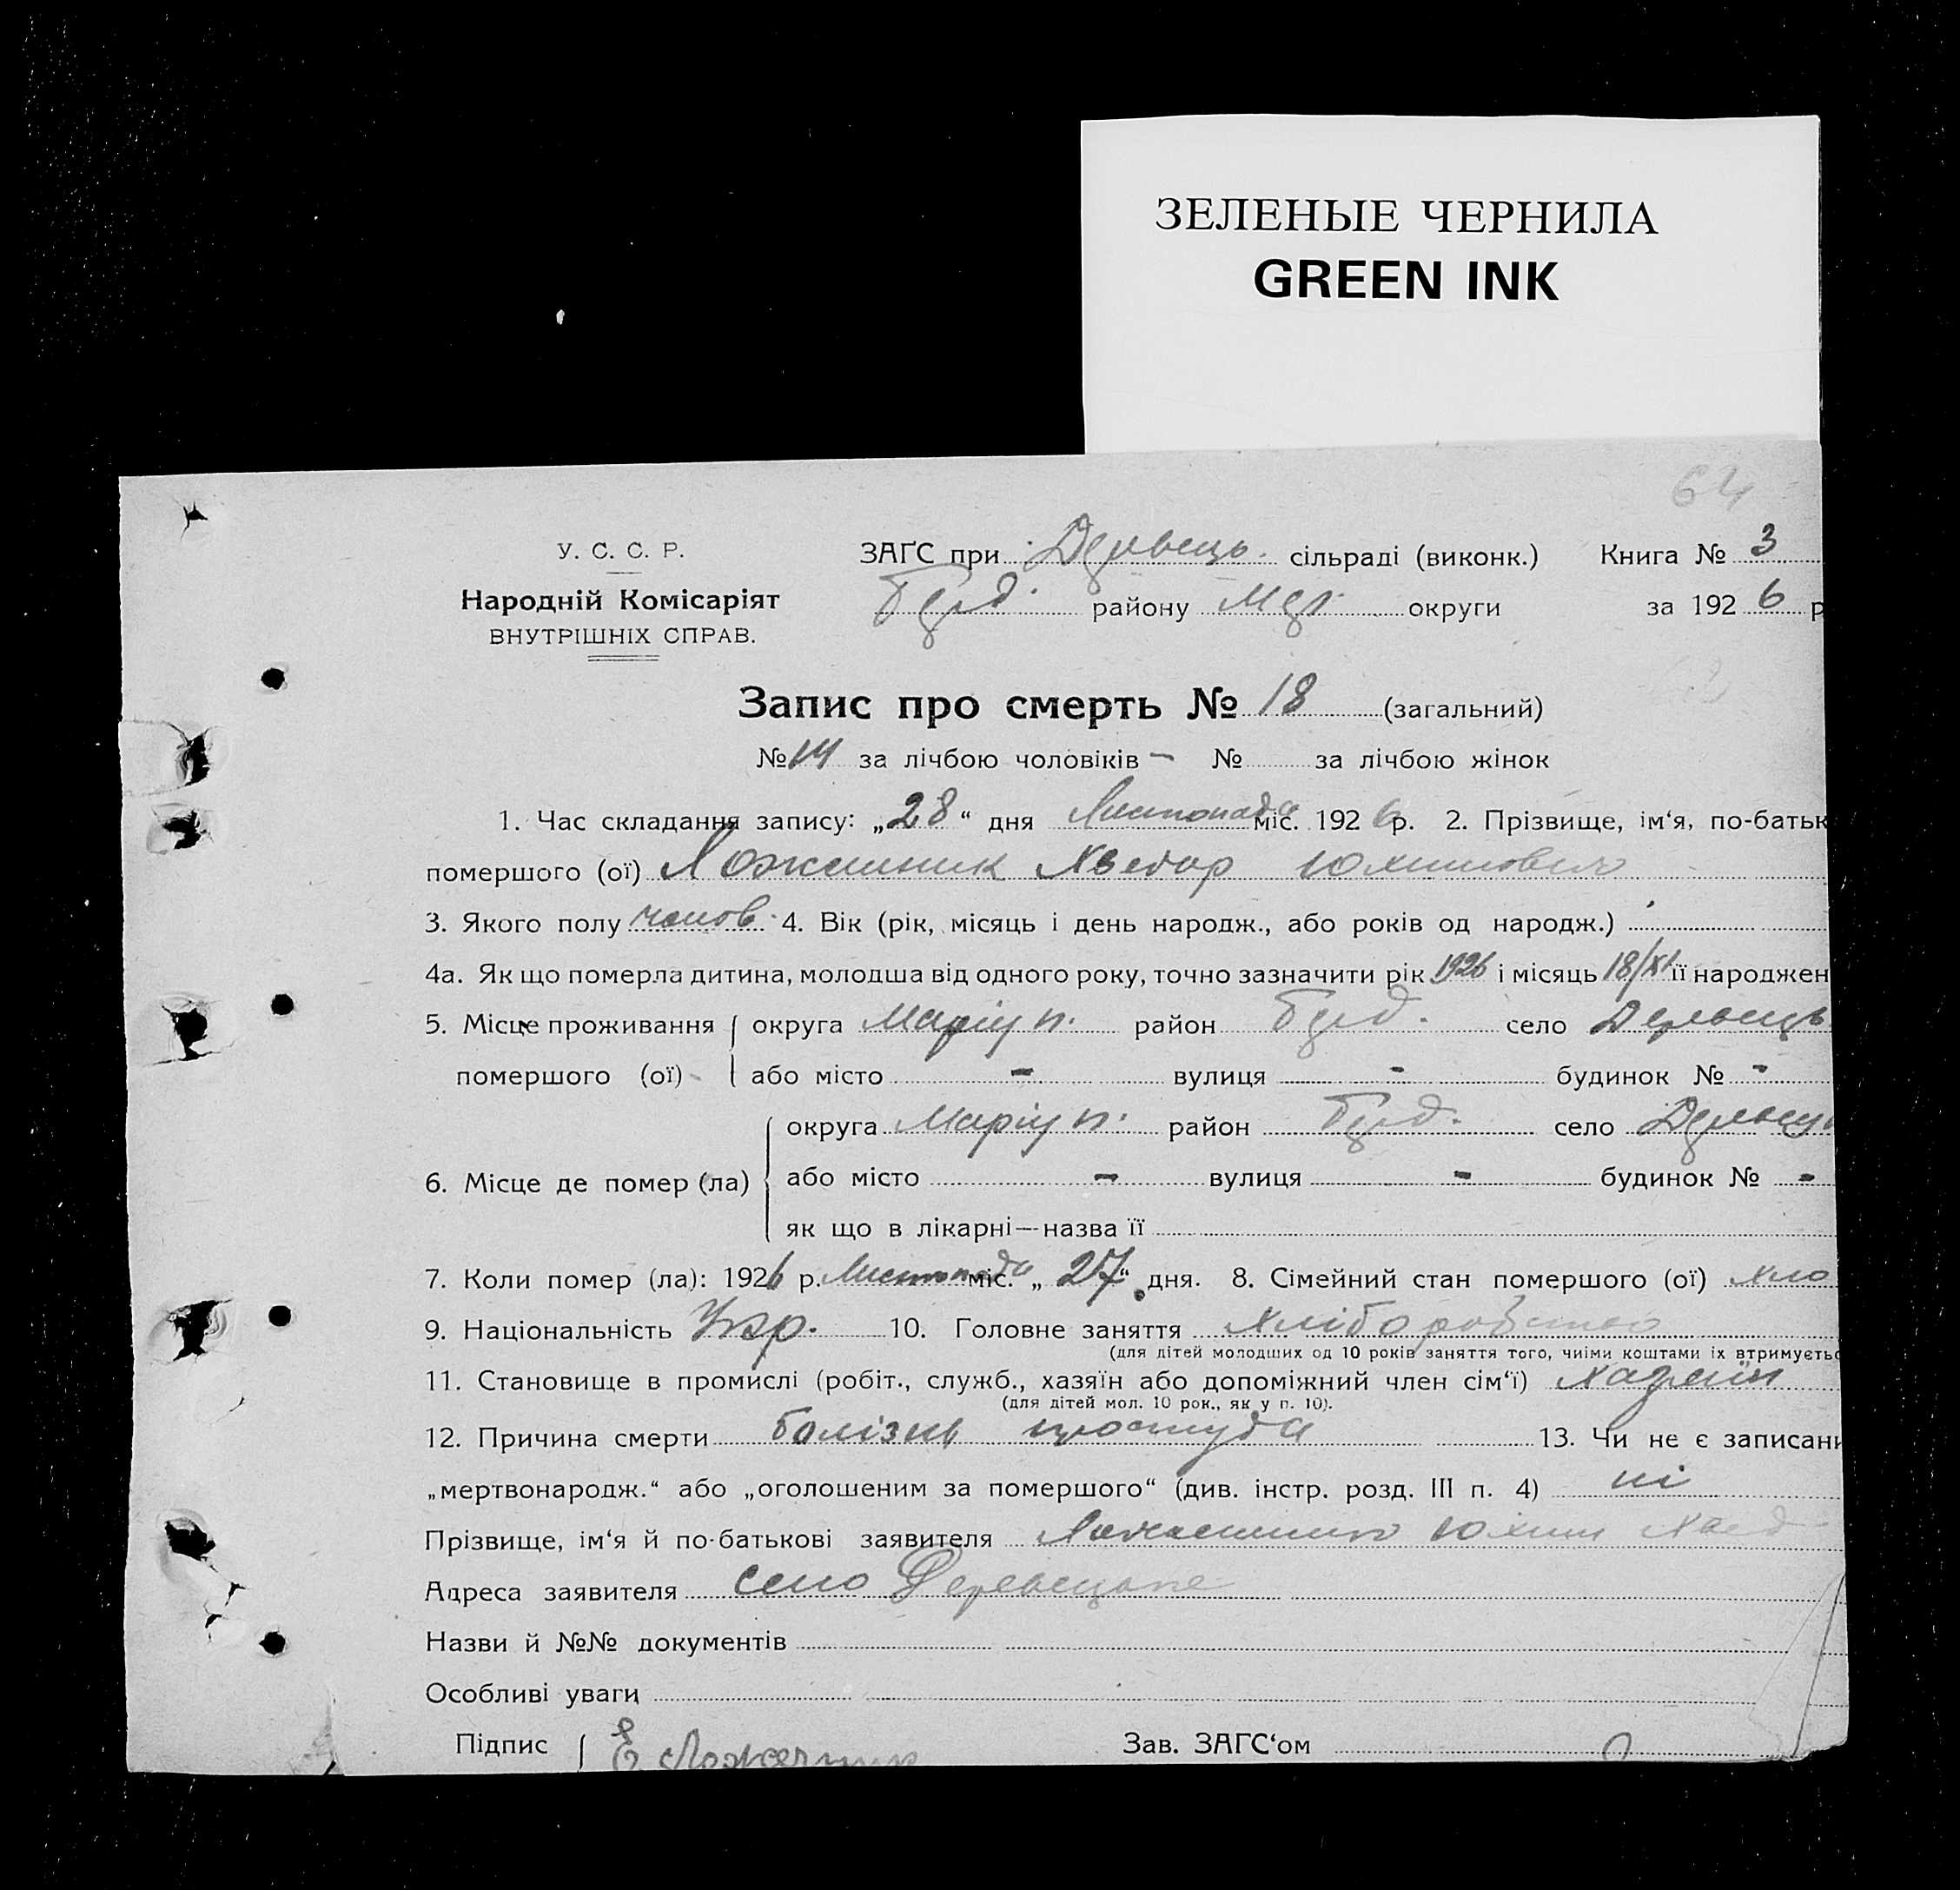 ЗЕЛЕНЫЕ ЧЕРНИЛА
GREEN INK
64
У. С. С. Р.
Народній Комісаріят
ВНУТРІШНІХ СПРАВ.
ЗАҐС при сільраді (виконк.) Книга № 3
району округи за 192 6 р
Запис про смерть № 18 (загальний)
№ 14 за лічбою чоловіків – № за лічбою жінок
1. Час складання запису: „28“ дня Листопада міс. 192 6 р. 2. Прізвище, ім‘я, по-батьк
помершого (ої) Хведор Юхимович
3. Якого полу чолов. 4. Вік (рік, місяць і день народж., або років од народж.)
4а. Як що померла дитина, молодша від одного року, точно зазначити рік 1926 і місяць 18/XI її народжен
5. Місце проживання округа Маріуп. район село
помершого (ої) або місто - вулиця - будинок № -
6. Місце де помер (ла) округа Маріуп. район село
або місто - вулиця - будинок № -
як що в лікарні—назва її
7. Коли помер (ла): 1926 р. Листопада міс. „27“ дня. 8. Сімейний стан помершого (ої) хло
9. Національність Укр. 10. Головне заняття Хліборобство
(для дітей молодших од 10 років заняття того, чиїми коштами їх втримуєтьс
11. Становище в промислі (робіт., служб., хазяїн або допоміжний член сім‘ї) Хазяїн
(для дітей мол. 10 рок., як у п. 10).
12. Причина смерти болізнь простуда 13. Чи не є записани
„мертвонародж.“ або „оголошеним за помершого“ (див. інстр. розд. III п. 4) ні
Прізвище, ім‘я й по-батькові заявителя Юхим Хвед
Адреса заявителя село
Назви й №№ документів
Особливі уваги
Підпис Зав. ЗАГС‘ом